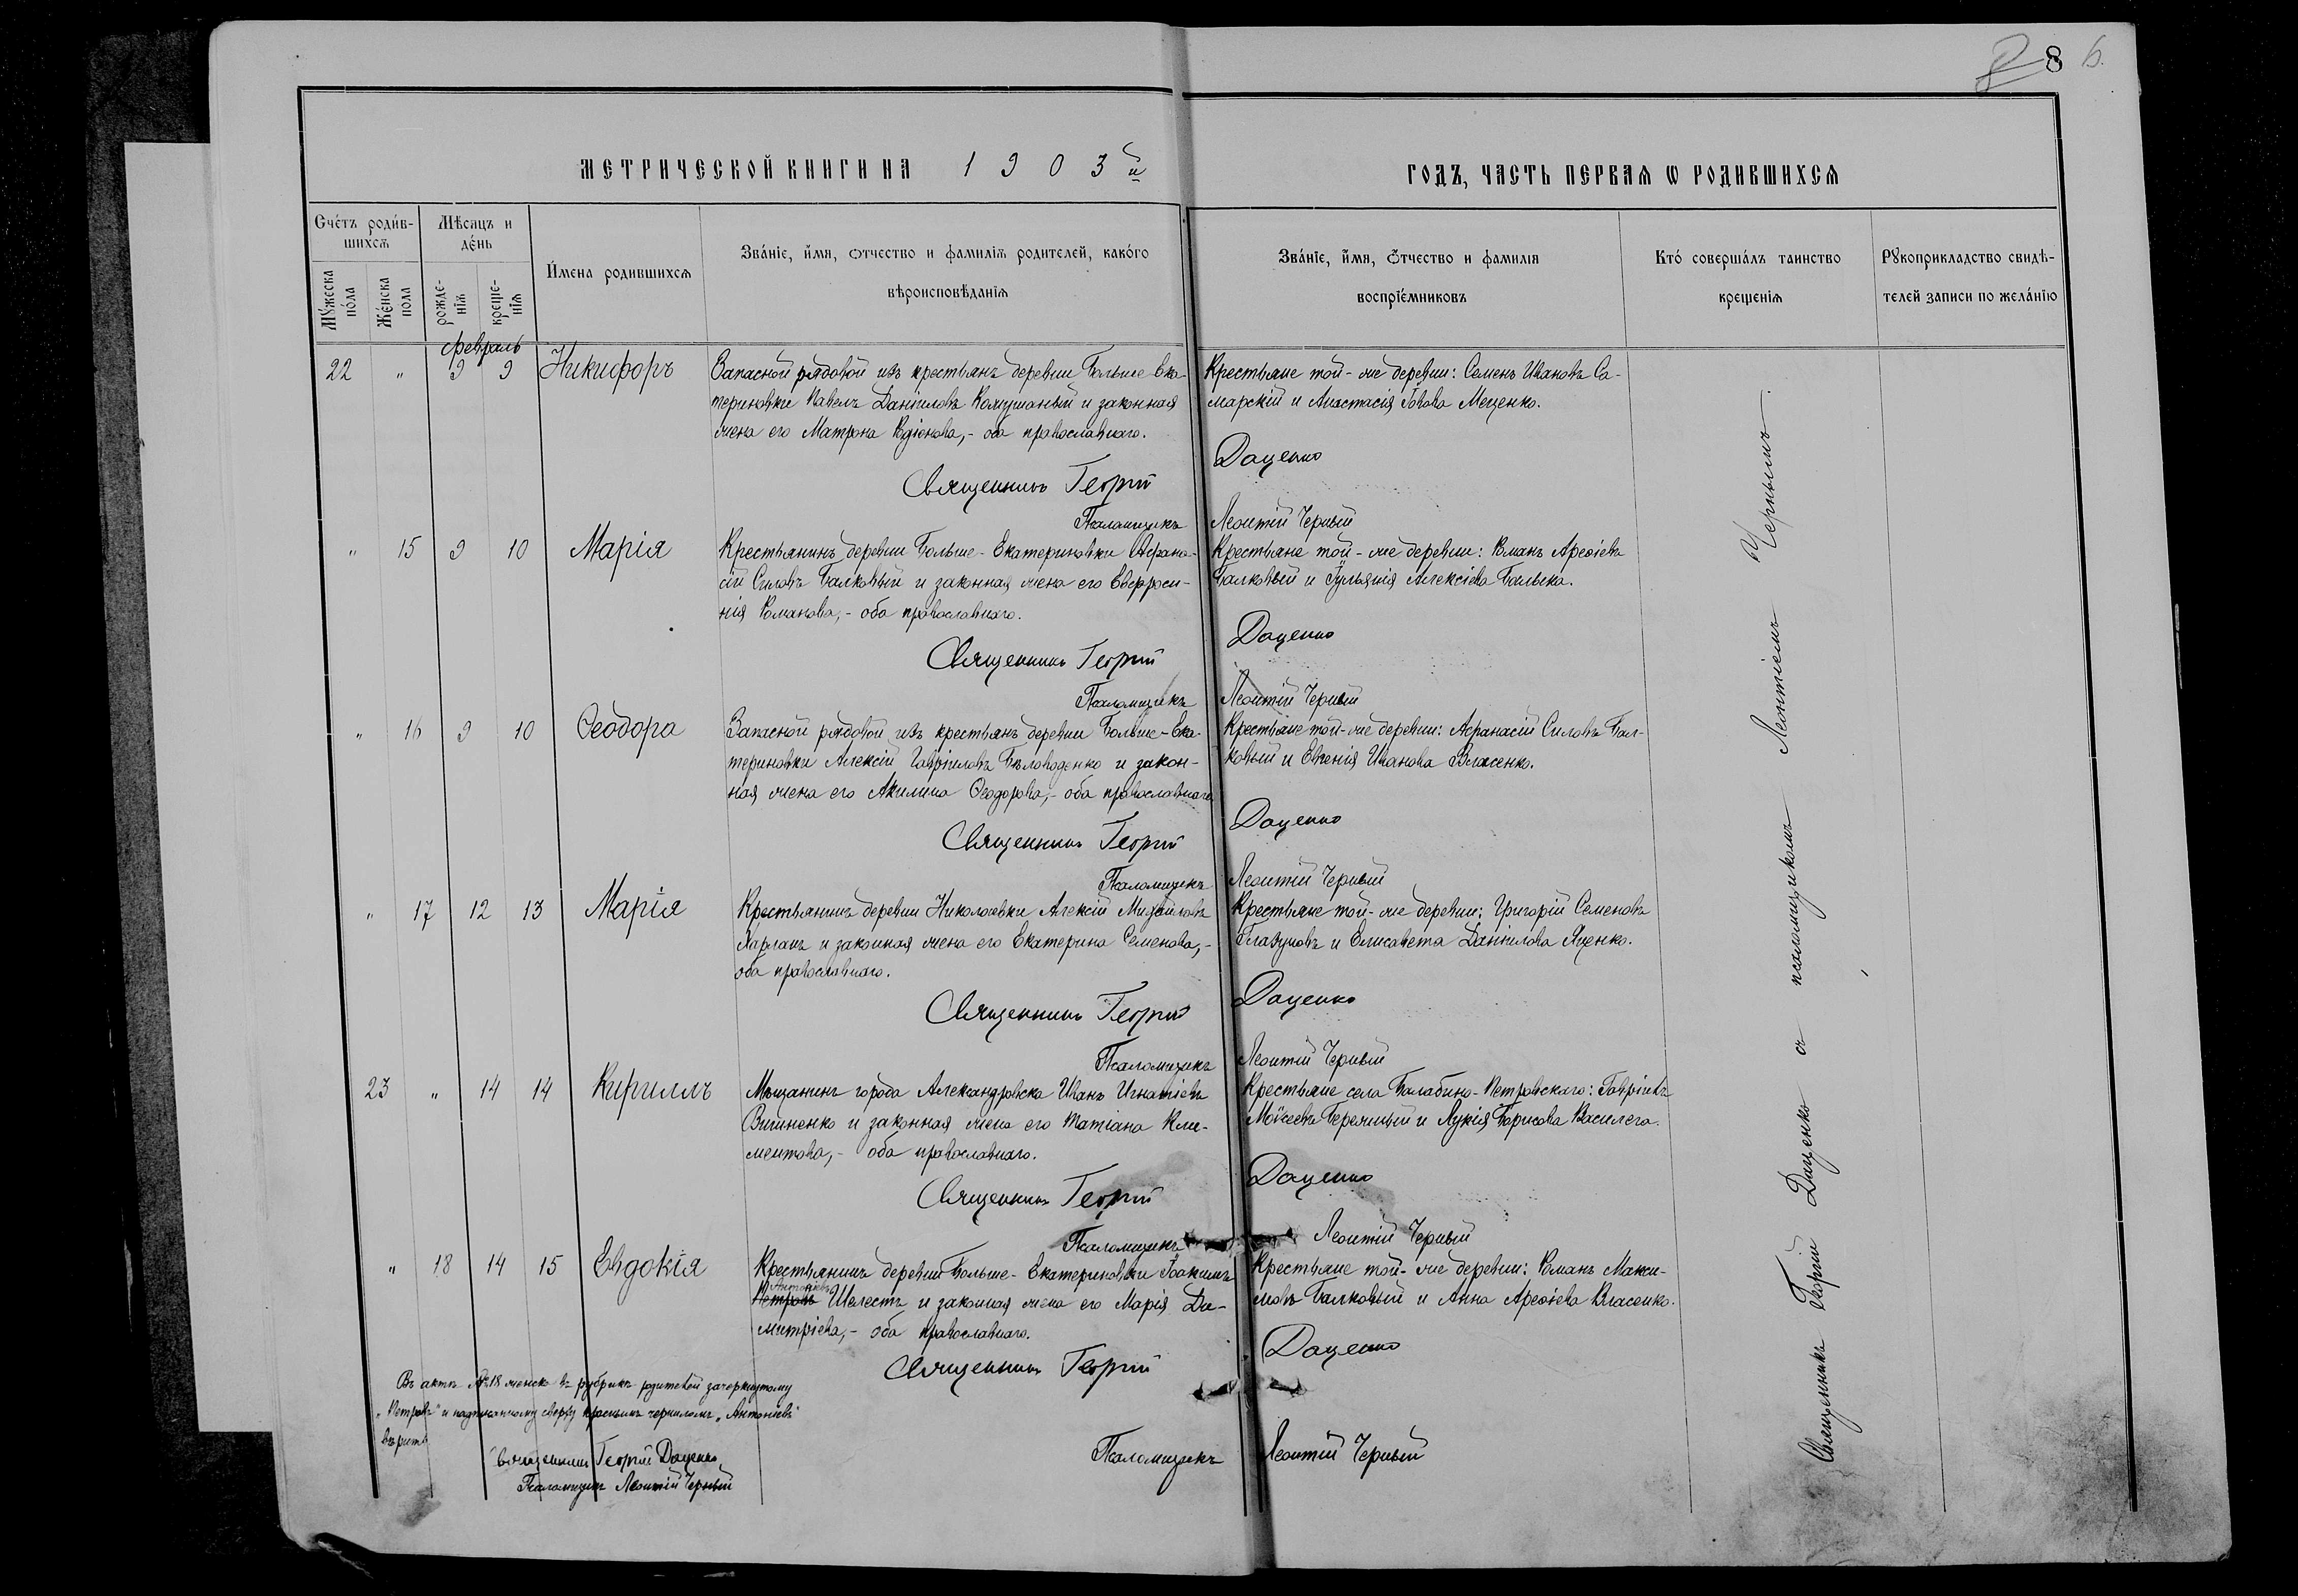 8 6.
МЕТРИЧЕСКОЙ КНИГИ НА 1903й ГОДЪ, ЧАСТЬ ПЕРВАЯ Ѡ РОДИВШИХСЯ
Счетъ родив-
шихся
Мѣсяцъ и
день
Мужеска
пола
Женска
пола
рожде-
нія
креще-
нія
Имена родившихся
Званіе, имя, отчество и фамилія родителей, какого
вѣроисповѣданія
Званіе, имя, отчество и фамилія
воспріемниковъ
Кто совершалъ таинство
крещенія
Рукоприкладство свидѣ-
телей записи по желанію
Февраль
22 " 9 9 Никифоръ
Запасной рядовой изъ крестьянъ деревни Больше Ека-
териновки Павелъ Даніиловъ и законная
жена его Матрона Родіонова,- оба православнаго.
Крестьяне той-же деревни: Семенъ Ивановъ Са-
марскій и Анастасія Іовова Меценко.
Священникъ Георгій Даценко
Псаломщикъ Леонтій Черный
" 15 9 10 Марія
Крестьянинъ деревни Больше-Екатериновки Афана-
сій Силовъ Балковый и законная жена его Евфроси-
нія Романова,- оба православнаго.
Крестьяне той-же деревни: Романъ Арефіевъ
Балковый и Іуліанія Алексіева
Священникъ Георгій Даценко
Псаломщикъ Леонтій Черный
" 16 9 10 Ѳеодора
Запасной рядовой изъ крестьянъ деревни Больше-Ека-
териновки Алексій Гавріиловъ Бѣловоденко и закон-
ная жена его Акилина Ѳеодорова,- оба православнаго
Крестьяне той-же деревни: Афанасій Силовъ Бал-
ковый и Евгенія Иванова Власенко.
Священникъ Георгій Даценко
Псаломщикъ Леонтій Черный
" 17 12 13 Марія
Крестьянинъ деревни Николаевки Алексій Михайловъ
Харланъ и законная жена его Екатерина Семенова,-
оба православнаго.
Крестьяне той-же деревни: Григорій Семеновъ
Глазуновъ и Елисавета Даніилова Яценко.
Священникъ Георгій Даценко
Псаломщикъ Леонтій Черный
23 " 14 14 Кириллъ
Мѣщанинъ города Александровска Иванъ Игнатіевъ
и законная жена его Татіана Кли-
ментова,- оба православнаго.
Крестьяне села Балабино-Петровскаго: Гавріилъ
Моѵсеевъ Бережный и Лукія Борисова Василега.
Священникъ Георгій Даценко
Псаломщикъ Леонтій Черный
" 18 14 15 Евдокія
Крестьянинъ деревни Больше-Екатериновки Іоакимъ
Антоніевъ
Петровъ Шелестъ и законная жена его Марія Ди-
митріева,- оба православнаго.
Крестьяне той-же деревни: Романъ Макси-
мовъ Балковый и Анна Арефіева Власенко.
Священникъ Георгій Даценко
Псаломщикъ Леонтій Черный
Въ актѣ №18 женск. въ рубрикѣ родителей зачеркнутому
„Петровъ" и надписанному сверху красными чернилами „Антоніевъ"
вѣрить
Священникъ Георгій Даценко
Псаломщикъ Леонтій Черный
Священникъ Георгій Даценко съ псаломщикомъ Леонтіемъ Чернымъ.